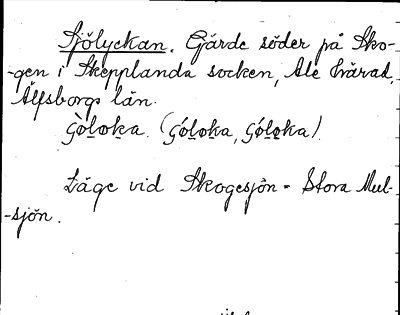 Sjölyckan. Gärde söder på Sko-
-gen i Skepplanda socken, Ale härad,
Älfsborgs län.
Gò̀loka. (Góloka, Góloka).
Läge vid Skogesjön = Stora Mul-
-sjön.